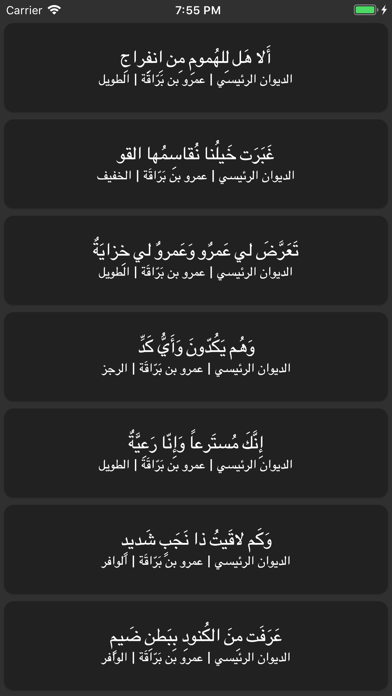 Carrier 7:55 PM
أَلا هَل لِلهُمومِ مِن انفِراجِ
الديوان الرئيسي | عمرو بن بَرّاقَة | الطويل
غَبَرَت خَيلُنا نُقاسمُها القو
الديوان الرئيسي | عمرو بن بَرّاقَة | الخفيف
تَعَرَّضَ لي عَمرٌو وَعَمروٌ لي خِزايَةٌ
الديوان الرئيسي | عمرو بن بَرّاقَة | الطويل
وَهُم يَكُدّونَ وَأَيُّ كَدِّ
الديوان الرئيسي | عمرو بن بَرّاقَة | الرجز
إِنَّكَ مُستَرعاً وَإِنّا رَعيَّةٌ
الديوان الرئيسي | عمرو بن بَرّاقَة | الطويل
وَكَم لاقَيتُ ذا نَجَبٍ شَديدٍ
الديوان الرئيسي | عمرو بن بَرّاقَة | الوافر
عَرَفت مِنَ الكُنودِ بِبَطنِ ضَيمٍ
الديوان الرئيسي | عمرو بن بَرّاقَة | الوافر